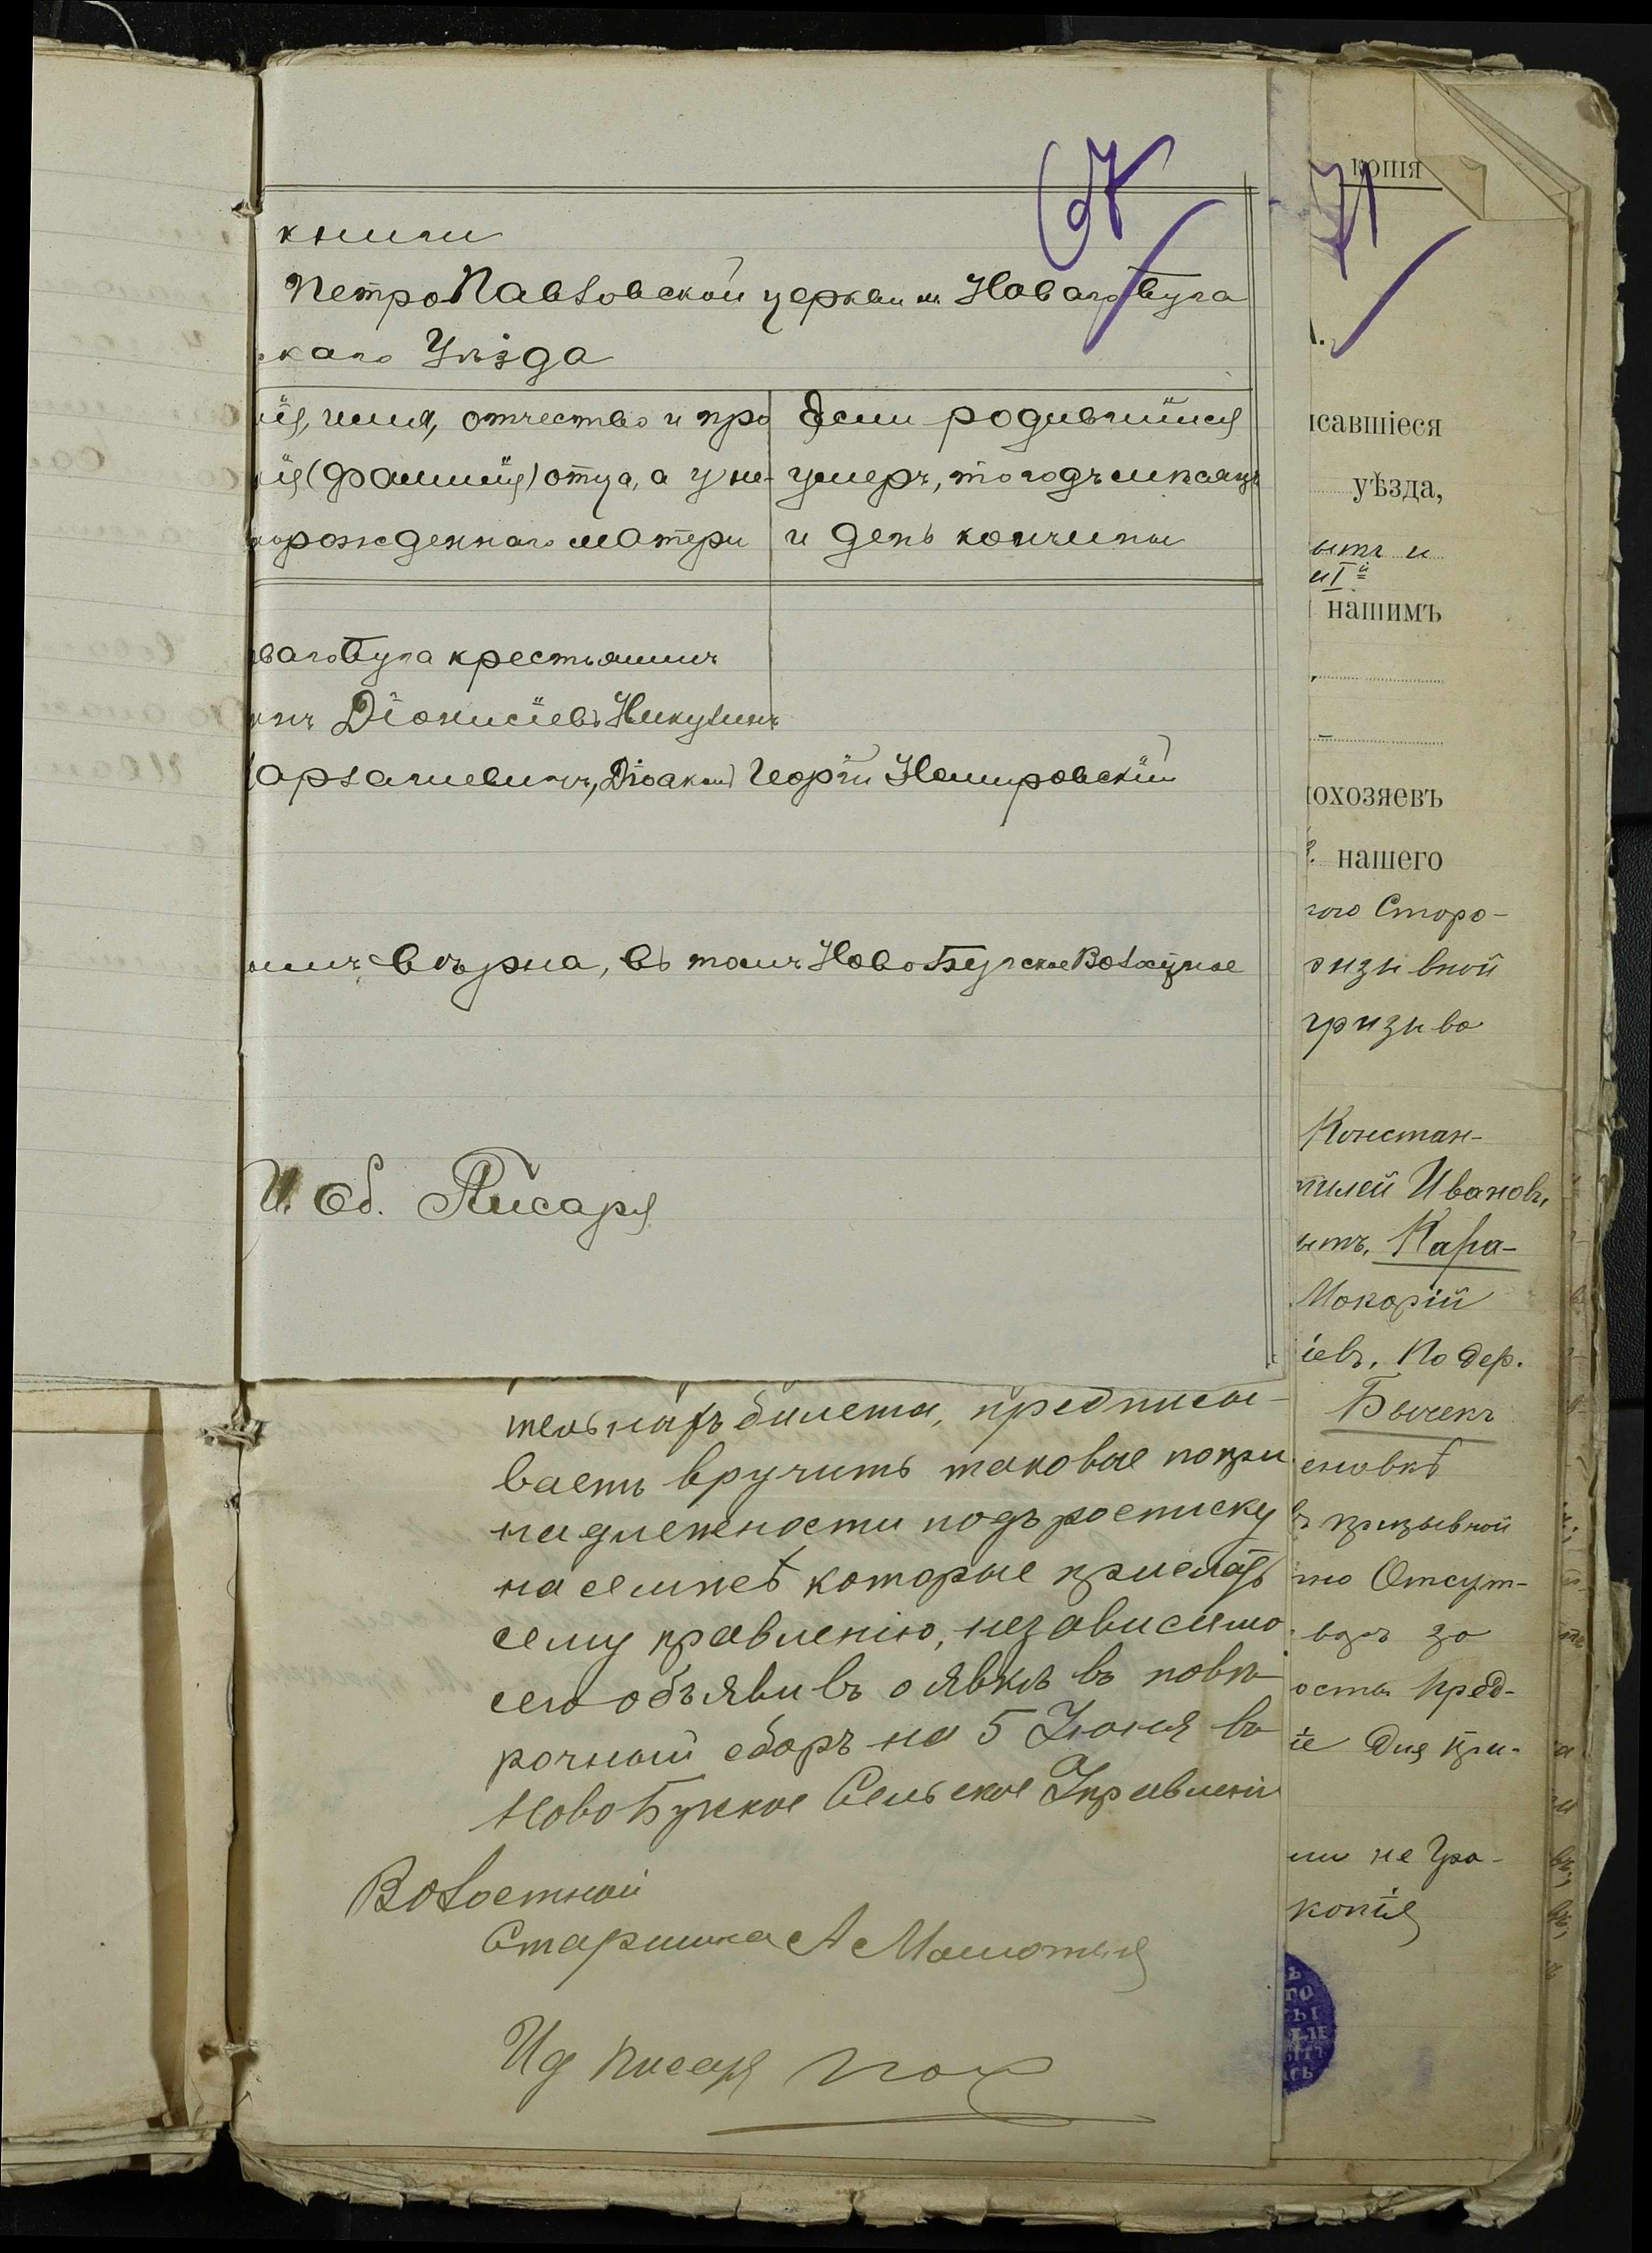 книги
ПетроПавловской церкви м Новаго Буга
скаго Уѣзда
ія, имя, отчество и про
кія (фамилія) отца, а у не-
норожденнаго матери
Если родившійся
умеръ, то годъ мѣсяцъ
и день кончины
ваго Буга крестьянинъ
Діонисіевъ Никулинъ
Діаконъ Георгій Немировскій
вѣрна, въ томъ НовоБугское Волостное
И. Об. Писаря
билета, предписы-
ваетъ вручить таковые попри
надлежности подъ росписку
на семже которые прислать
сему правленію, независимо
сего объявивъ о явкѣ въ повѣ-
рочный сборъ на 5 Іюня въ
НовоБугское Сельское Управленіе
Волостной
Старшина А
Ид Писаря
копія
исавшіеся
уѣзда,
ытъ и
иІй
нашимъ
охозяевъ
нашего
гого Сторо-
ризывной
призыва
Констан-
тилей Ивановъ,
ытъ, Кара-
Макарій
іевъ, По дер.
Бычекъ
еновкѣ
въ призывной
но Отсут-
валъ за
ость пред-
іе Для при-
ли не Гра-
копія